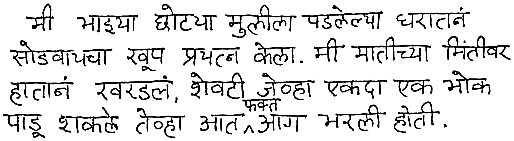 मी माझ्या छोट्या मुलीला पडलेल्या घरातनं
सोडवायचा खूप प्रयत्न केला. मी मातीच्या भिंतीवर
हातानं खरडलं, शेवटी जेव्हा एकदा एक भोक
पाडू शकले तेव्हा आत फक्त आग भरली होती.